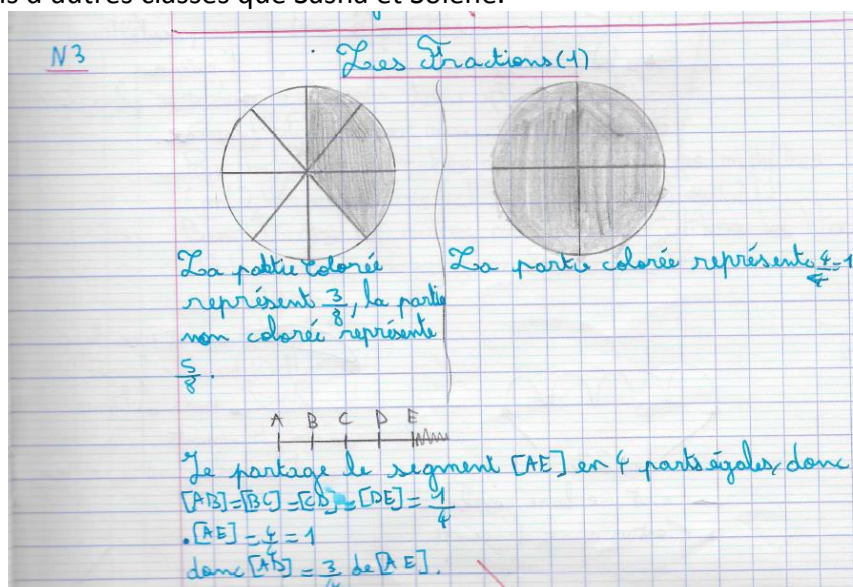 d'autres classes que Sasha et Solène.
N3
Les Fractions (1)
La partie colorée
représent 3/8, la partie
non colorée représente
5/8.
La partie colorée représente 4/4=1
A B C D E
Je partage le segment [AE] en 4 parts égales, donc
[AB]=[BC]=[CD]=[DE]=1/4
.[AE]=4/4=1
donc [AD]=3/4 de [AE].